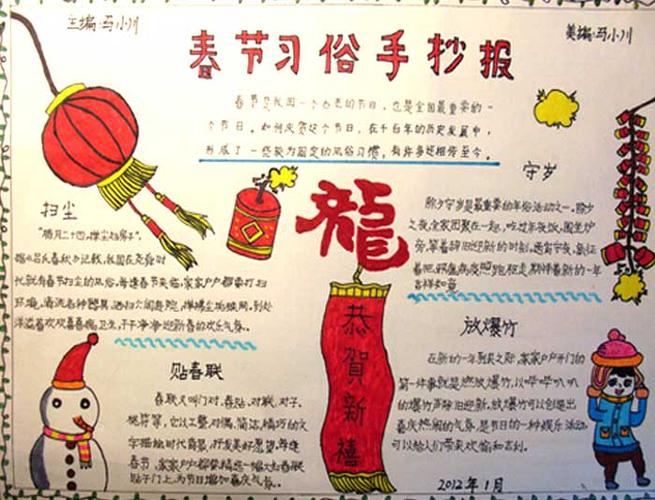 主编:马小川
美编:马小川
春节习俗手抄报
春节是我国一个古老的节日，也是全国最重要的一
个节日。如何庆贺这个节日，在千百年的历史发展中，
形成了一些较为固定的风俗习惯，有许多还相传至今。
扫尘
"腊月二十四，掸尘扫房子"。
据《吕氏春秋》记载，我国在尧舜时
代就有春节扫尘的风俗。每逢春节来临，家家户户都要打扫
环境，清洗各种器具，
洋溢着欢欢喜喜搞卫生、干干净净迎新春的欢乐气氛。
贴春联
春联又叫门对、春贴、对联、对子、
桃符等，它以工整、对偶、简洁、精巧的文
字描绘时代背景，抒发美好愿望。每逢
春节，家家户户都要精选一幅大红春联
贴于门上，为节日增加喜庆气氛。
龍
恭
賀
新
禧
守岁
除夕守岁是最重要的年俗活动之一。除夕
之夜，全家团聚在一起，吃过年夜饭，围坐炉
旁，等着辞旧迎新的时刻，通宵守夜，象征
着把一切邪瘟病疫照跑驱走，期待着新的一年
吉祥如意
放爆竹
在新的一年到来之际，家家户户开门的
第一件事就是燃放爆竹，以哔哔叭叭
的爆竹声除旧迎新。放爆竹可以创造出
喜庆热闹的气氛，是节日的一种娱乐活动，
可以给人们带来欢愉和吉利。
2012年1月